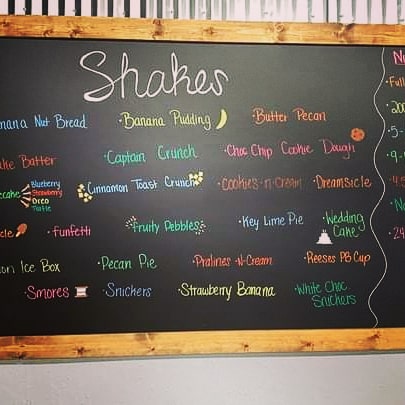 Shakes
nana Nut Bread ·Banana Pudding ·Butter Pecan
ake Batter ·Captain Crunch ·Choc Chip Cookie Dough
ecake Blueberry Strawberry Oreo Turtle ·Cinnamon Toast Crunch ·Cookies-n-Cream ·Dreamsicle
cle ·Funfetti ·Fruity Pebbles ·Key Lime Pie ·Wedding Cake
on Ice Box ·Pecan Pie ·Pralines-N-Cream ·Reeses PB Cup
·Smores ·Snickers ·Strawberry Banana ·White Choc Snickers
·Full
·5-
·9-